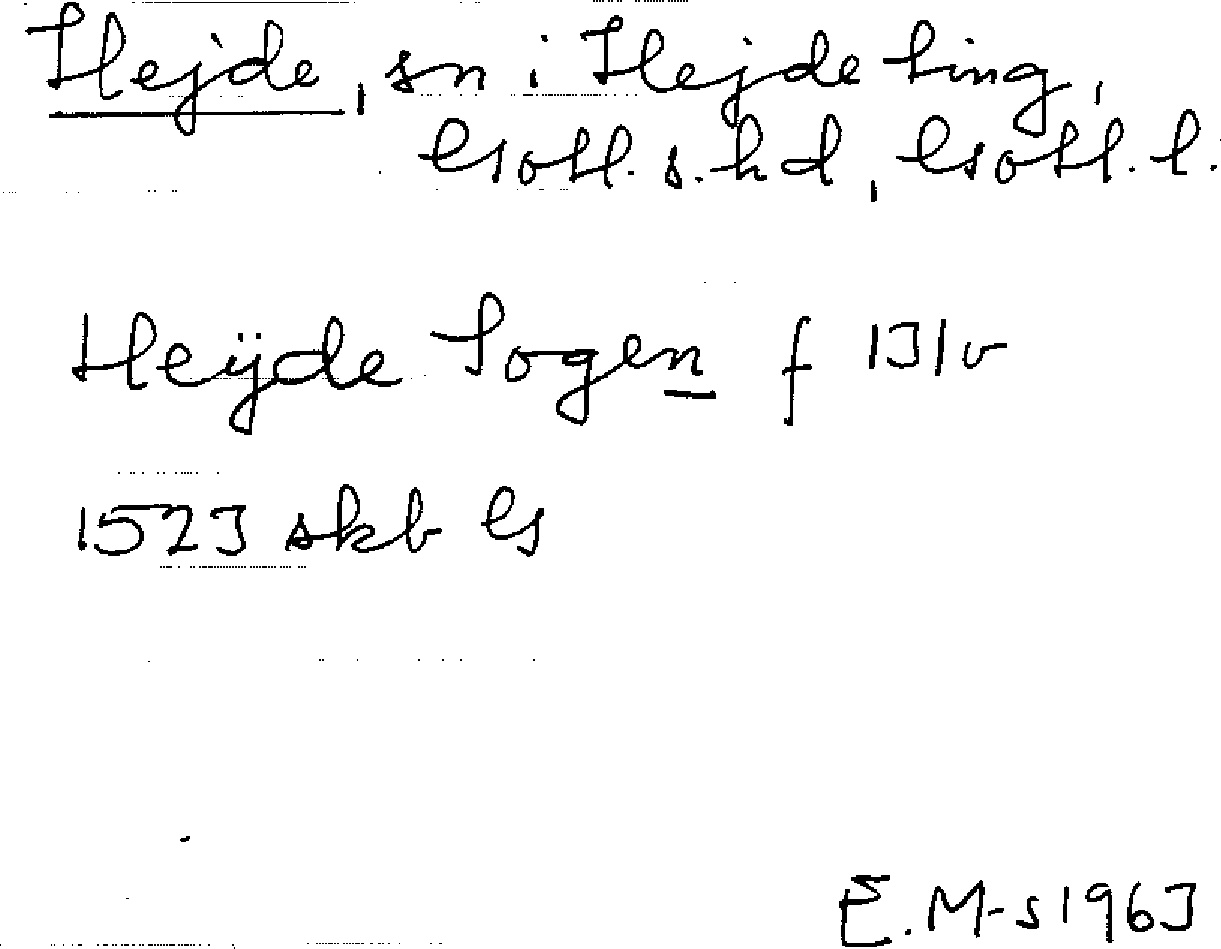 Hejde, sn i Hejde ting,
Gotl. s. hd, Gotl. l.
Heÿde Sogen f 131v
1523 skb G
E. M-s 1963